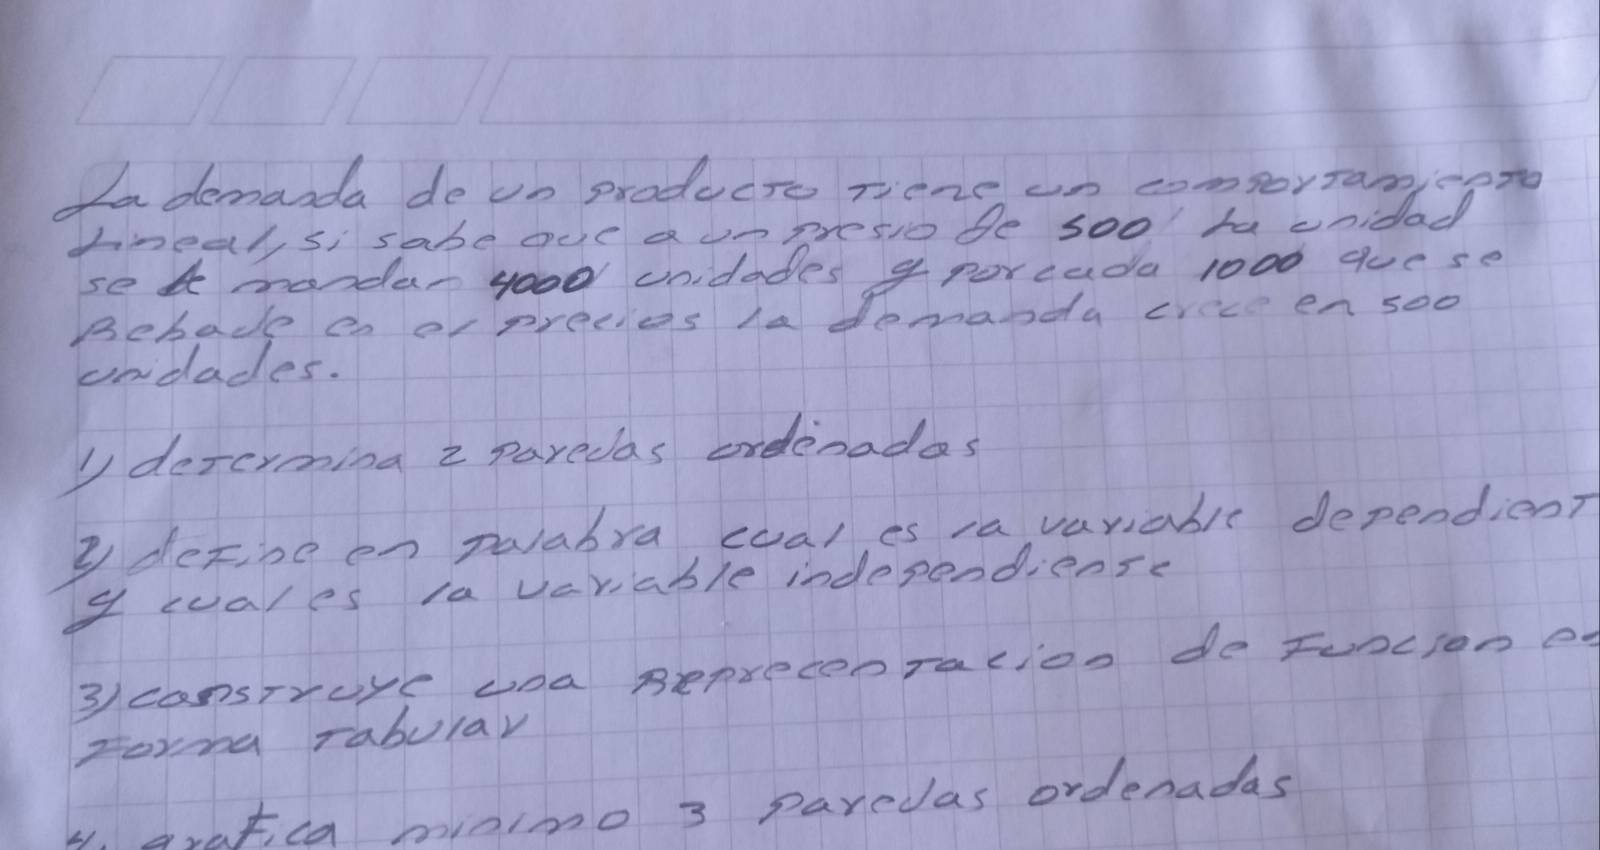 La demanda de un producto tiene un comportamiento
Lineal, si sabe que a un presio de 500 la unidad
se mandan 4000 unidades y por cada 1000 que se
Rebade en el precios la demanda crece en 500
undades.
1) determina 2 paredas ordenadas
2) define en palabra cual es la variable dependient
y cual es la variable independiente
3) construye una Reprecentacion de Funcion en
Forma Tabular
4. grafica minimo 3 paredas ordenadas